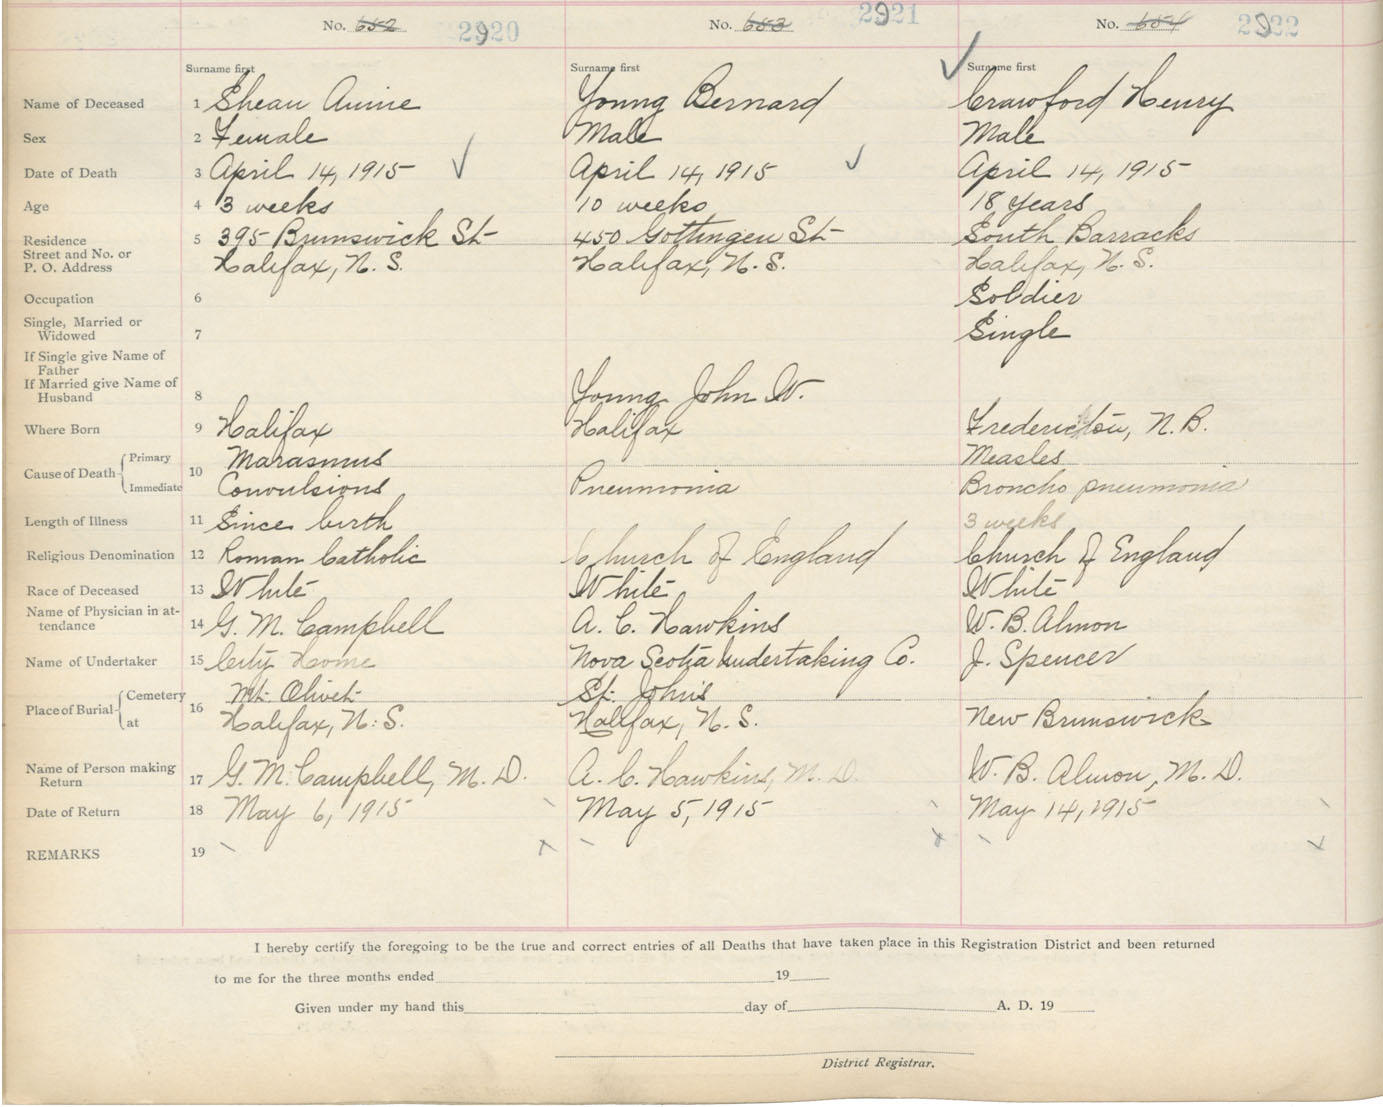 No. 652 2920 No. 653 2921 No. 654 2922
Surname first Surname first Surname first
Name of Deceased 1 Shean Annie Young Bernard Crawford Henry
Sex 2 Female Male Male
Date of Death 3 April 14, 1915 April 14, 1915 April 14, 1915
Age 4 3 weeks 10 weeks 18 years
Residence 5 395 Brunswick St 450 Gottingen St South Barracks
Street and No. or
P. O. Address Halifax, N. S. Halifax, N. S. Halifax, N. S.
Occupation 6 Soldier
Single, Married or
Widowed 7 Single
If Single give Name of
Father
If Married give Name of
Husband 8 Young John W.
Where Born 9 Halifax Halifax Fredericton, N. B.
Primary Marasmus Measles
Cause of Death 10
Immediate Convulsions Pneumonia Broncho pneumonia
Length of Illness 11 Since birth 3 weeks
Religious Denomination 12 Roman Catholic Church of England Church of England
Race of Deceased 13 White White White
Name of Physician in at-
tendance 14 G. M. Campbell A. C. Hawkins W. B. Almon
Name of Undertaker 15 City Home Nova Scotia Undertaking Co. J. Spencer
Cemetery Mt. Olivet St. John's
Place of Burial 16
at Halifax, N. S. Halifax, N. S. New Brunswick
Name of Person making
Return 17 G. M. Campbell, M. D. A. C. Hawkins, M. D. W. B. Almon, M. D.
Date of Return 18 May 6, 1915 May 5, 1915 May 14, 1915
REMARKS 19
I hereby certify the foregoing to be the true and correct entries of all Deaths that have taken place in this Registration District and been returned
to me for the three months ended 19
Given under my hand this day of A. D. 19
District Registrar.